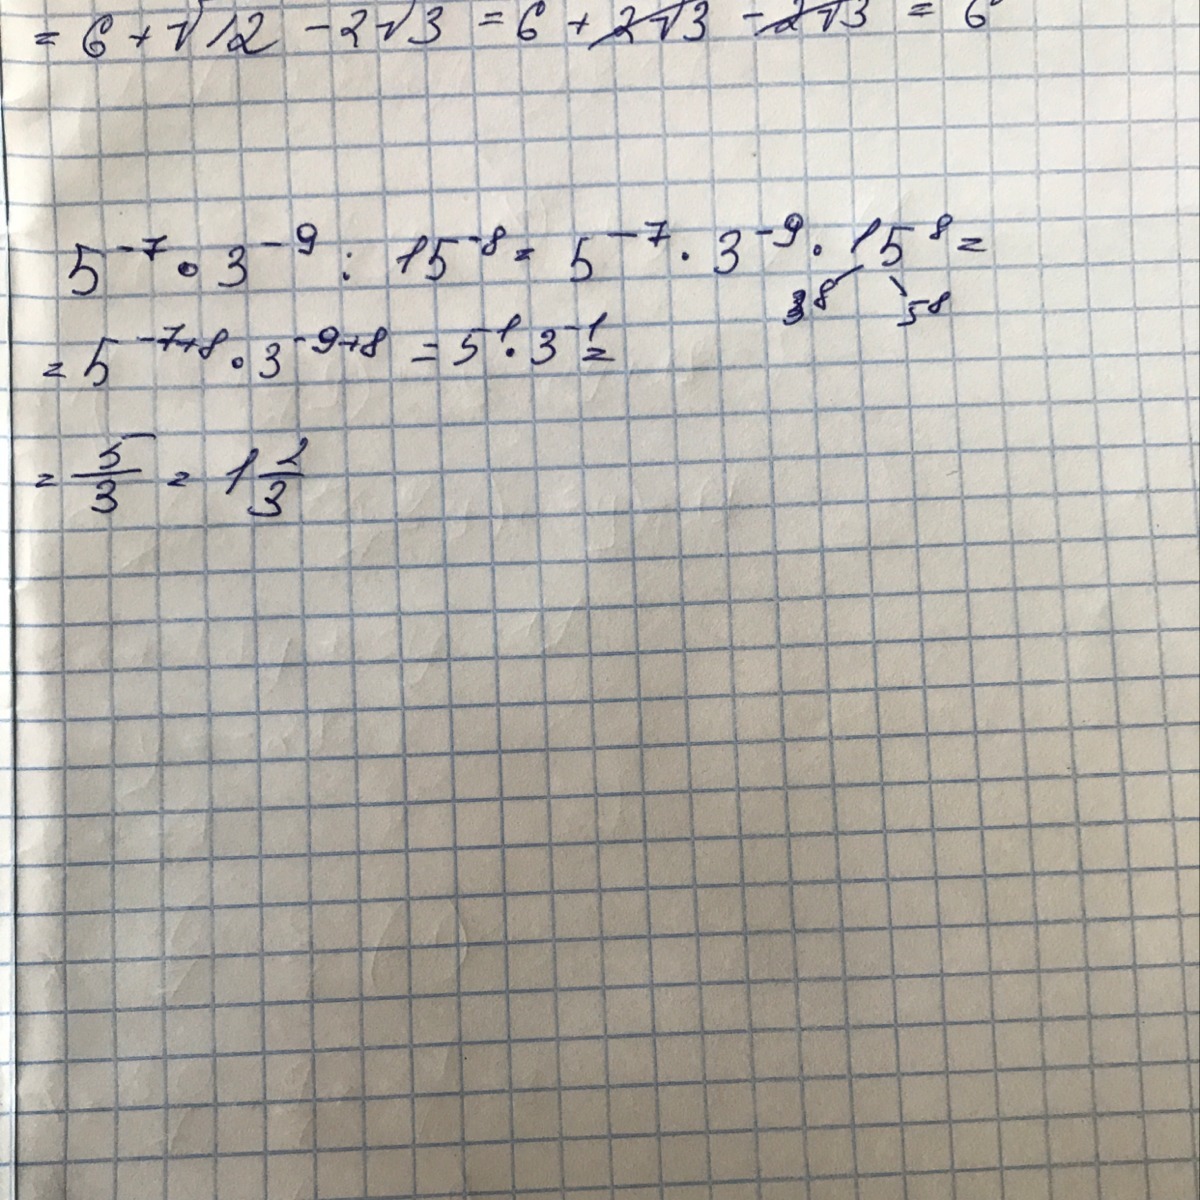 = 6 + √12 - 2√3 = 6 + 2√3 - 2√3 = 6
5⁻⁷ · 3⁻⁹ : 15⁻⁸ = 5⁻⁷ · 3⁻⁹ · 15⁸ =
3⁸ 5⁸
= 5⁻⁷⁺⁸ · 3⁻⁹⁺⁸ = 5¹ · 3⁻¹ =
= 5/3 = 1 2/3